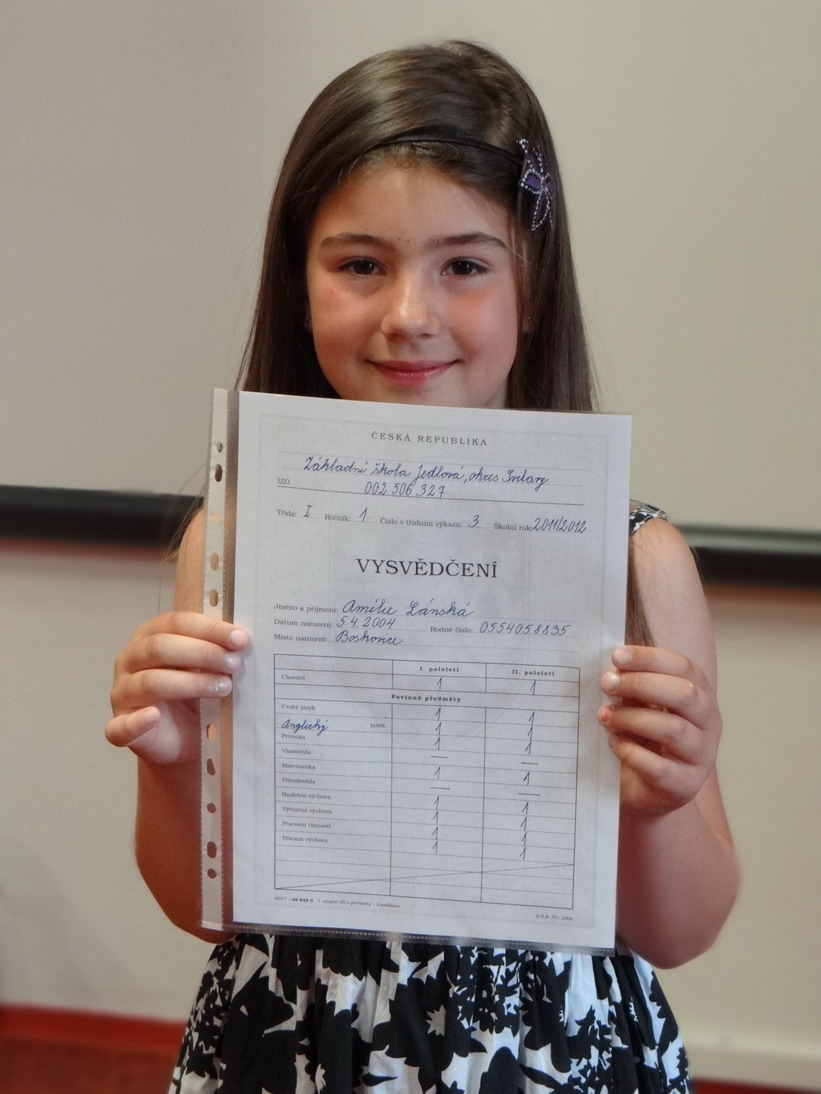 ČESKÁ REPUBLIKA
Základní škola Jedlová, okres Svitavy
IZO 002 506 327
Třída: I Ročník: 1 Číslo v třídním výkazu: 3 Školní rok 2011/2012
VYSVĚDČENÍ
Jméno a příjmení: Amélie Lánská
Datum narození: 5.4.2004 Rodné číslo: 0554058835
Místo narození: Boskovice
I. pololetí II. pololetí
Chování 1 1
Povinné předměty
Český jazyk 1 1
Anglický jazyk 1 1
Prvouka 1 1
Vlastivěda — —
Matematika 1 1
Přírodověda — —
Hudební výchova 1 1
Výtvarná výchova 1 1
Pracovní činnosti 1 1
Tělesná výchova 1 1